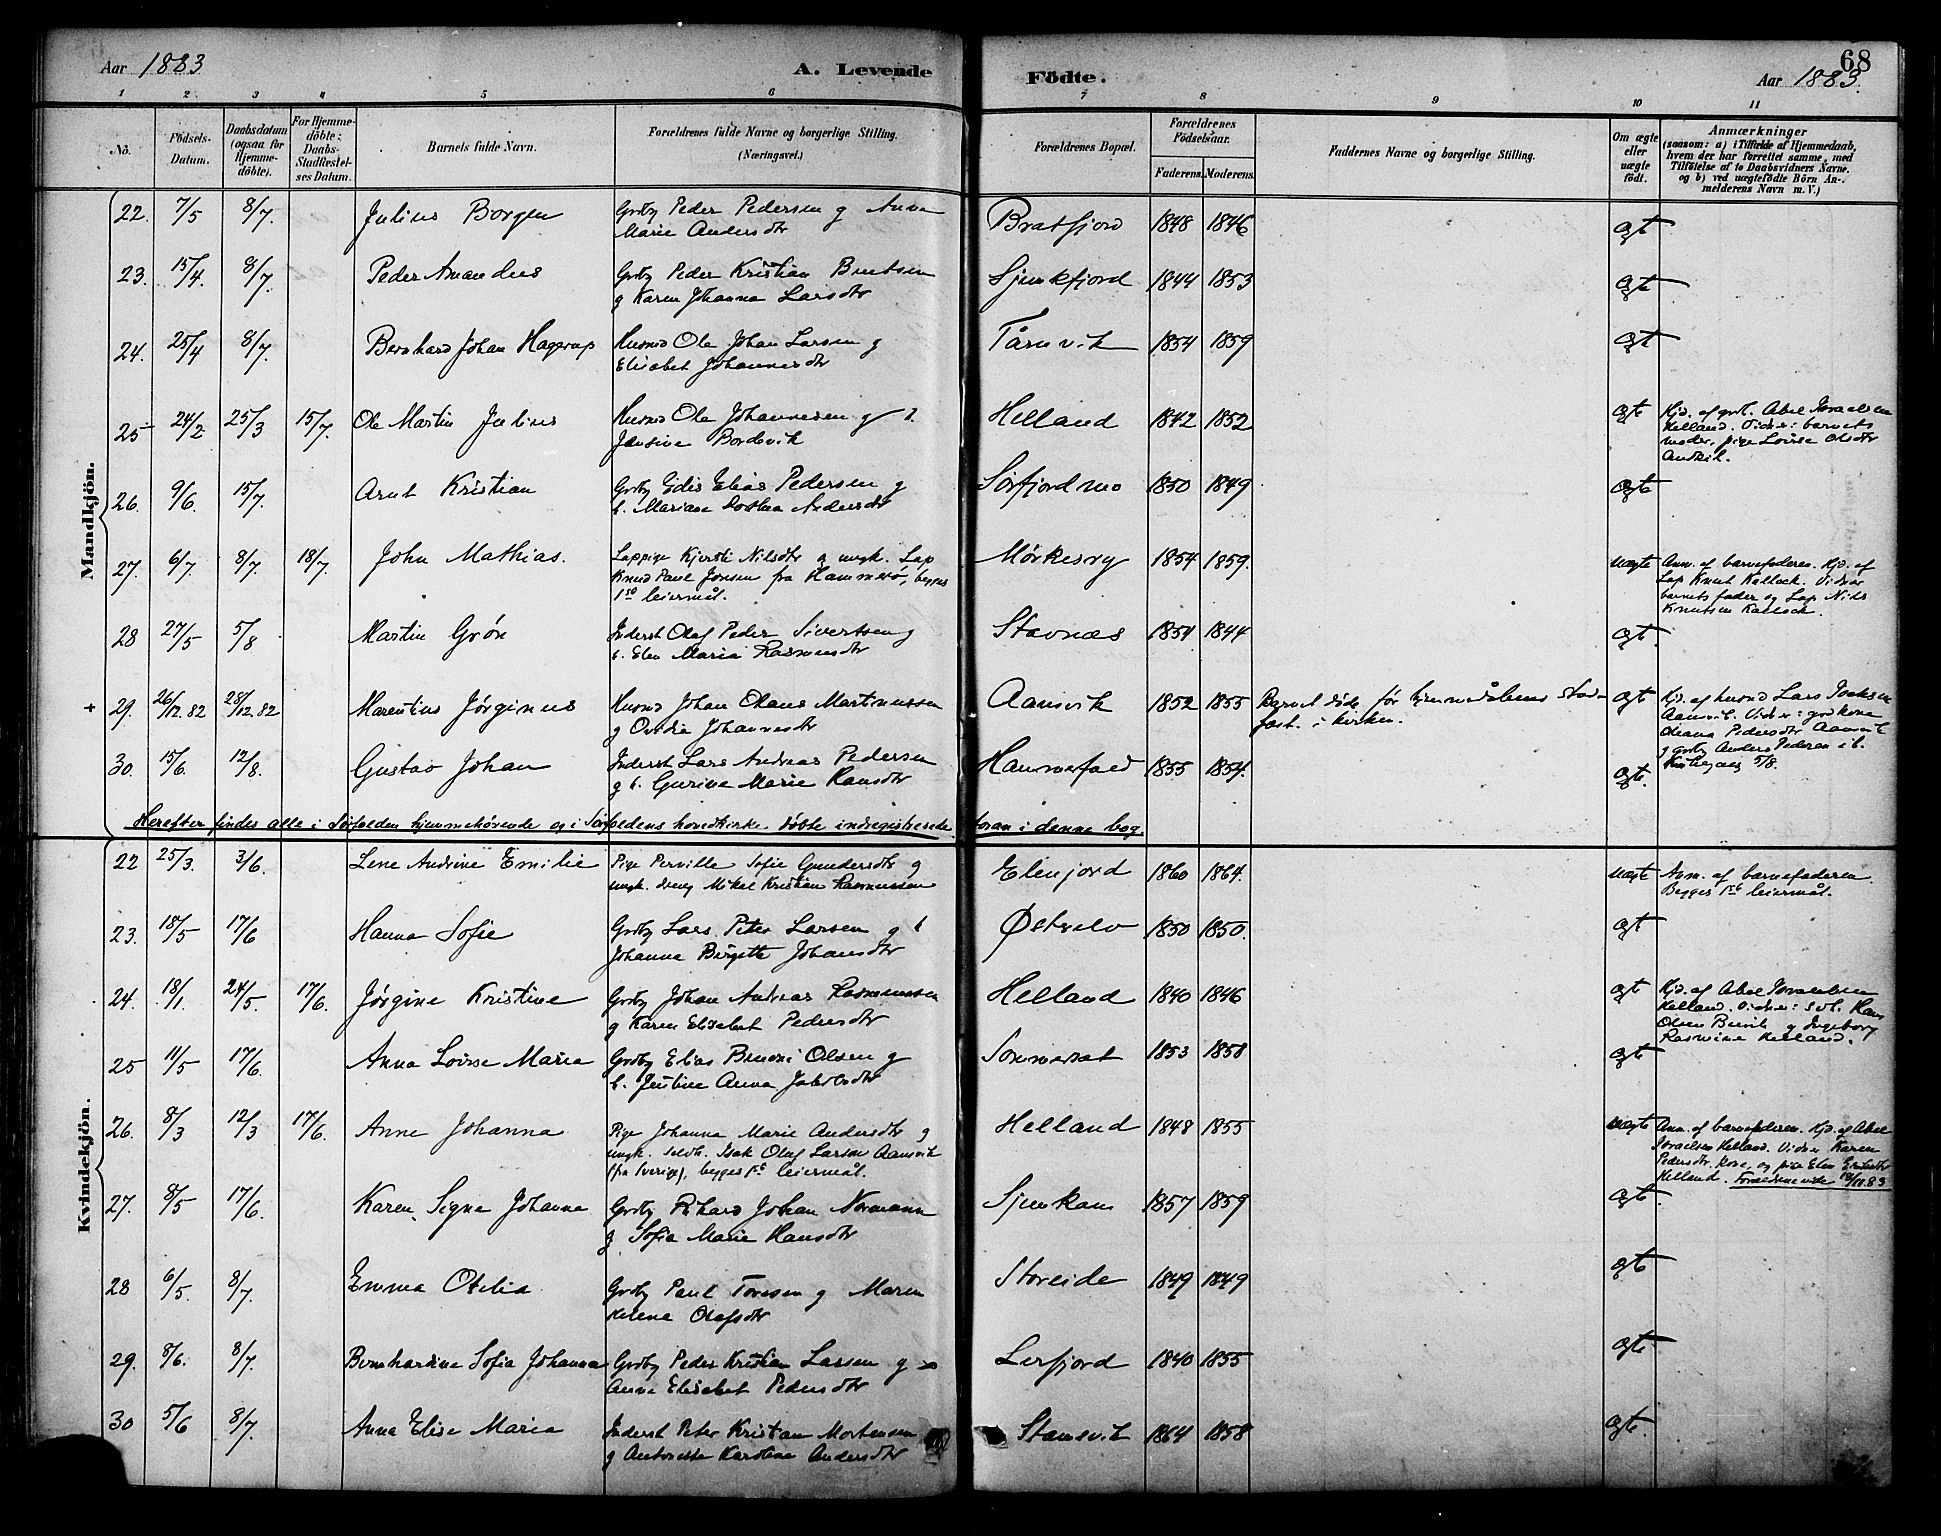 68
Aar 1883
A. Levende Födte.
Aar 1883.
1 2 3 4 5 6 7 8 9 10 11
No.
Födsels-Datum.
Daabsdatum (ogsaa for Hjemmedöbte).
For Hjemmedöbte: Daabs-Stadfæstelses Datum.
Barnets fulde Navn.
Forældrenes fulde Navne og borgerlige Stilling. (Næringsvei.)
Forældrenes Bopæl.
Forældrenes Födselsaar.
Faderens. Moderens.
Faddernes Navne og borgerlige Stilling.
Om ægte eller uægte födt.
Anmærkninger
(saasom: a) i Tilfælde af Hjemmedaab, hvem der har forrettet samme, med Tilföielse af to Daabsvidners Navne. og b) ved uægtefödte Börn Anmelderens Navn m. V.)
Mandkjön.
22. 7/5 8/7. Julius Borgen Grdby Peder Pedersen g Anna Bratfjord 1848 1846 ægt
Marie Andersdtr
23. 15/4. 8/7. Peder Amandus Grdby Peder Kristian Bentsen Sjunkfjord 1844 1853 ægt
g Karen Johanna Larsdtr
24. 25/4 8/7. Bernhard Johan Hagerup Husmd Ole Johan Larsen g Tårnvik 1854 1859 ægt
Elisabet Johannesdtr
25 24/2 25/3 15/7. Ole Martin Julius Husmd Ole Johannesen g Helland 1842 1852 ægte Hjd. af grdb. Abel Israelsen
Jensine Bordevik Helland. Vidner: barnets
moder, pige Lovise Olsdtr
26. 9/6. 15/7. Arnt Kristian Grdby Edis Elias Pedersen g Sørfjordmo 1850 1849 ægte
h. Mariane Dorthea Andersdtr
27. 6/7. 8/7. 18/7. John Mathias. Lappige Kjersti Nilsdtr g ungk. Lap Mørkesvy 1854 1859. uægte Anm. af barnefaderen. Hjd. af
Knud Paul Jonsen fra Hammerø, begges Lap Knut Kallock. Vidner
1ste leiermål. barnets fader og Lap Nils
Knutsen Kallock.
28 27/5 5/8 Martin Grøn Inderst Olaf Peder Sivertsen g Stavnæs 1854 1844 ægt.
h. Elen Maria Rasmusdtr
+ 29. 26/12.82 28/12.82 Marentius Jørginus Husmd Johan Olaus Martinussen Aamsvik 1852 1855 Barnet døde før hjemmedåbens stad- ægt Hjd. af husmd Lars Isaksen
g Ovidia Johannesdtr fæst. i kirken. Aamsvik. Vidner: grdkone
Oleana Pedersdtr Aamsvik
g grdby Anders Pedersen i b.
30. 15/6. 12/8. Gustav Johan Inderst Lars Andreas Pedersen Hammerfald 1855 1854. ægt.
g h. Gurine Marie Hansdtr
Herefter findes alle i Sørfolden hjemmehørende og i Sørfoldens hovedkirke døbte indregistrerede foran i denne bog
Kvindekjön.
22 25/3. 3/6. Lene Andrine Emilie Pige Pernille Sofie Gundersdtr g Elvfjord 1860 1864. uægte Anm. af barnefaderen.
ungk. dreng Mikal Kristian Rasmussen Begges 1ste leiermål.
23. 18/5 17/6 Hanna Sofie Grdby Lars Peter Larsen g h Østerelv 1850 1850. ægt
Johanna Birgitte Johansdtr
24. 18/1. 24/5. 17/6. Jørgine Kristine Grdby Johan Andreas Rasmussen Helland 1840 1846 ægt Hjd. af Abel Israelsen
g Karen Elisabet Pedersdtr Helland. Vidner: Hans
Olsen g Ingeborg
Rasmine Helland.
25 11/5 17/6. Anna Lovise Maria Grdby Elias Benoni Olsen g Sommerset 1853 1858 ægte
h. Justine Anna Jakobsdtr
26. 8/3 12/3 17/6. Anne Johanna Pige Johanna Marie Andersdtr g Helland 1848 1855 uægte Anm. af barnefaderen. Hjd. af Abel
ungk. Isak Olaf Larsen Aamsvik Israelsen Helland. Vidner Karen
(fra Sverige), begges 1ste leiermål. Pedersdtr. kone, og pige Elen
Helland. Forældrene viede 18/11.83
27. 8/5 17/6. Karen Signe Johanna Grdby Rikard Johan Normann Sjunkan 1857 1859 ægte
g Sofia Marie Hansdtr
28 6/5. 8/7. Emma Otilia Grdby Paul Toresen g Maren Storeide 1849 1849 ægte
Helene Olafsdtr
29. 8/6. 8/7. Bernhardine Sofia Johanna Grdby Peder Kristian Larsen g Lerfjord 1840 1855 ægte
Anna Elisabet Pedersdtr
30 5/6 8/7. Anna Elise Maria Inderst Peter Kristian Mortensen Stamsvik 1864 1858 ægte
g Antonette Karoline Andersdtr